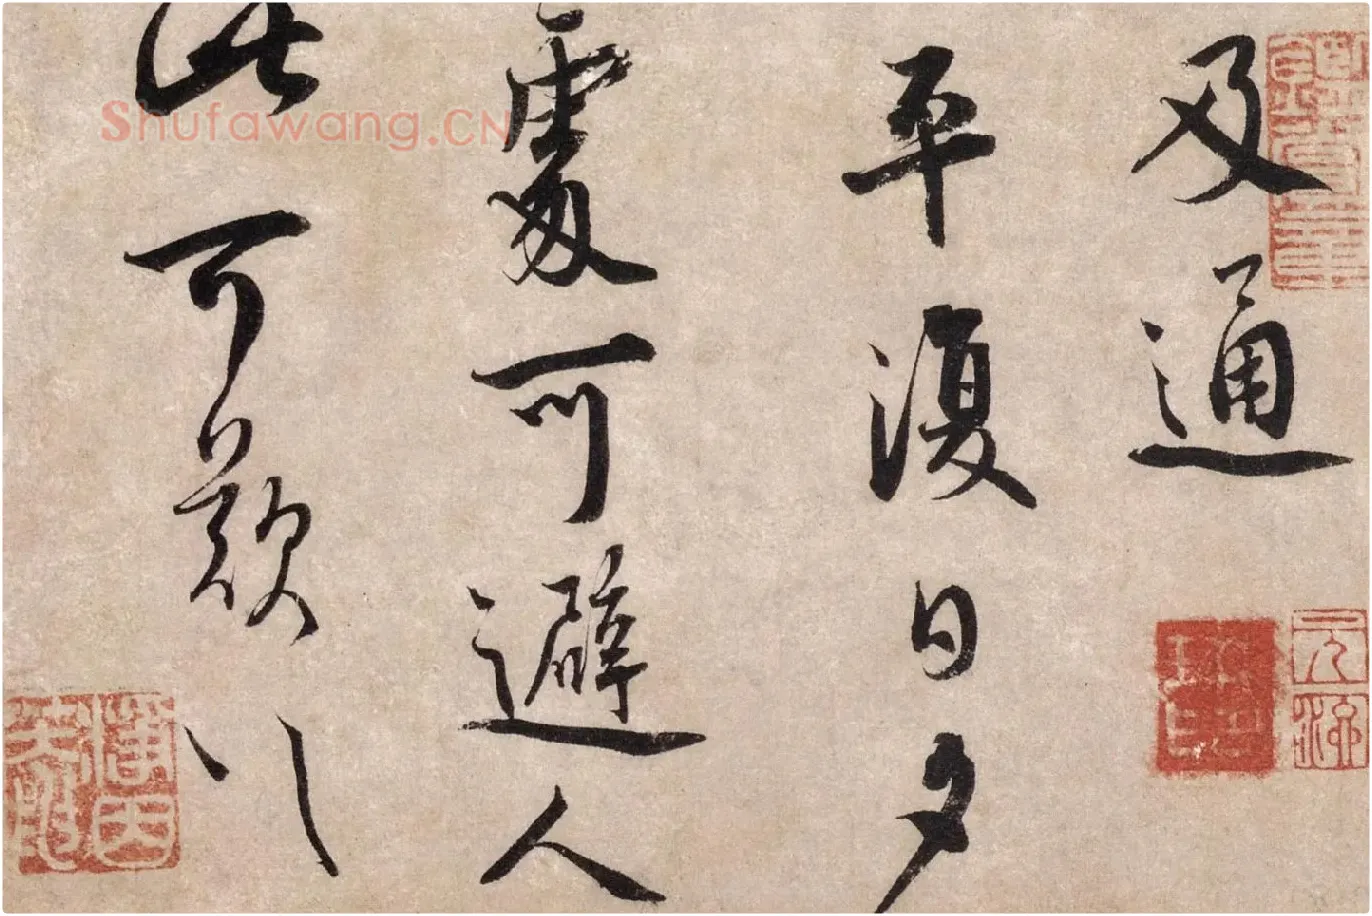 及通
平復日夕
處可避人
此可歎以
Shufawang.CN